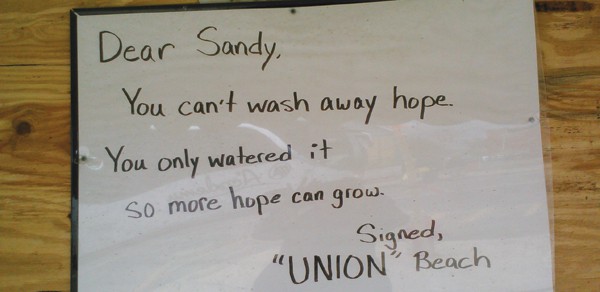 Dear Sandy,
You can't wash away hope.
You only watered it
so more hope can grow.
Signed,
"UNION" Beach